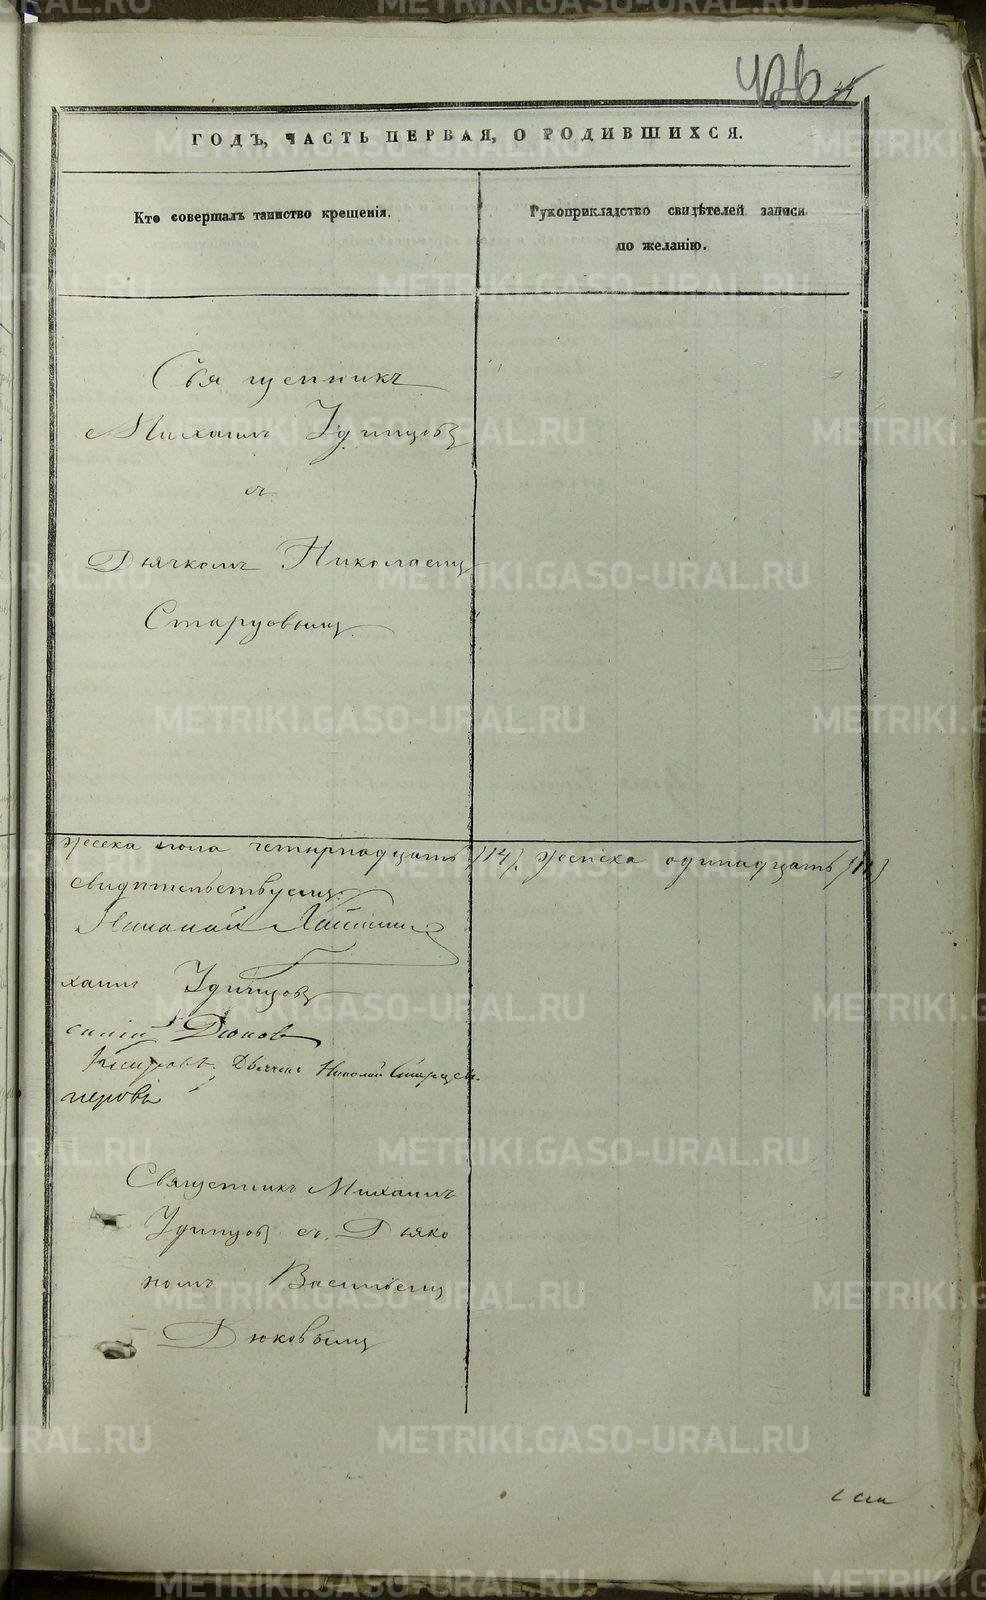 426
ГОДЪ, ЧАСТЬ ПЕРВАЯ, О РОДИВШИХСЯ.
Кто совершалъ таинство крещенія.
Рукоприкладство свидѣтелей записи
по желанію.
Священникъ
Михаилъ Удинцовъ
съ
Дьячкомъ Николаемъ
Старцовымъ.
жеска пола четырнадцать /14/, женска одинадцать /11/
свидѣтельствуемъ:
Николай
хаилъ Удинцовъ
силій Дюков
Дьячекъ Николай Старцев.
Священникъ Михаилъ
Удинцовъ съ Дьяко
номъ Васильемъ
Дюковымъ
METRIKI.GASO-URAL.RU